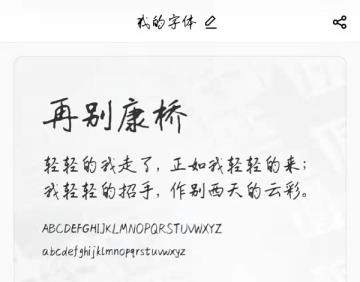 我的字体
再别康桥
轻轻的我走了，正如我轻轻的来；
我轻轻的招手，作别西天的云彩。
ABCDEFGHIJKLMNOPQRSTUVWXYZ
abcdefghijklmnopqrstuvwxyz